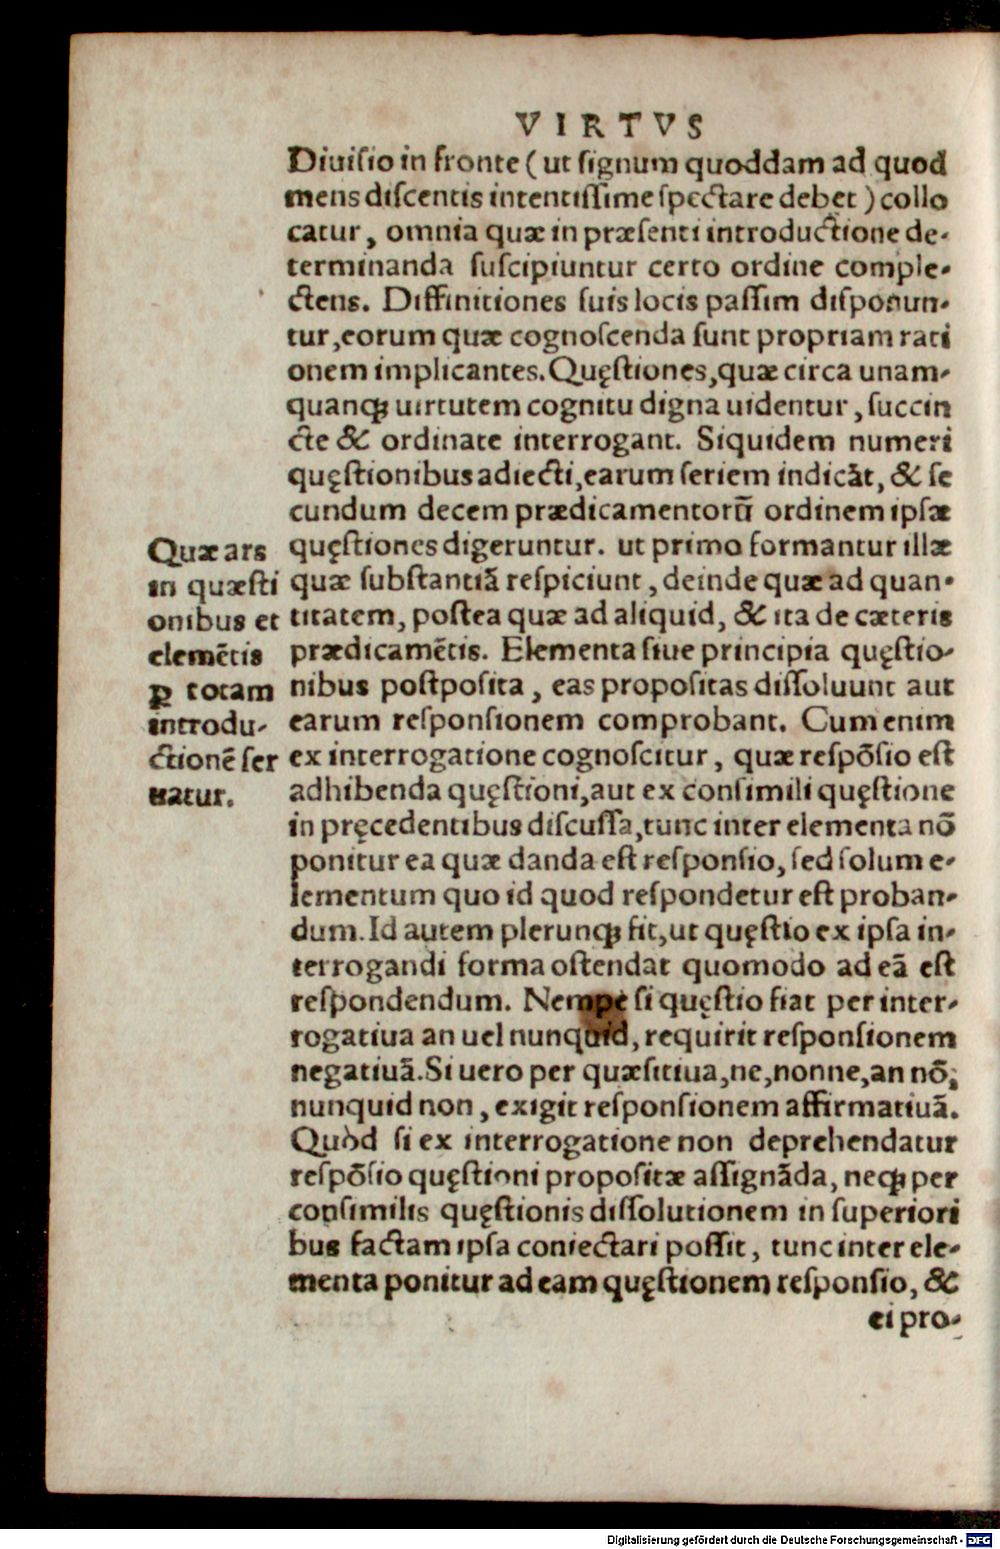 VIRTVS
Diuiſio in fronte (ut ſignum quoddam ad quod
mens diſcentis intentiſſime ſpectare debet) collo
catur, omnia quæ in præſenti introductione de-
terminanda ſuſcipiuntur certo ordine comple-
ctens. Diffinitiones ſuis locis paſſim diſponun-
tur, eorum quæ cognoſcenda ſunt propriam rati
onem implicantes. Quęſtiones, quæ circa unam-
quanqꝫ uirtutem cognitu digna uidentur, ſuccin
cte & ordinate interrogant. Siquidem numeri
quęſtionibus adiecti, earum ſeriem indicãt, & ſe
cundum decem prædicamentorũ ordinem ipſæ
quęſtiones digeruntur. ut primo formantur illæ
quæ ſubſtantiã reſpiciunt, deinde quæ ad quan-
titatem, poſtea quæ ad aliquid, & ita de cæteris
prædicamẽtis. Elementa ſiue principia quęſtio-
nibus poſtpoſita, eas propoſitas diſſoluunt aut
earum reſponſionem comprobant. Cum enim
ex interrogatione cognoſcitur, quæ reſpõſio eſt
adhibenda quęſtioni, aut ex conſimili quęſtione
in pręcedentibus diſcuſſa, tunc inter elementa nõ
ponitur ea quæ danda eſt reſponſio, ſed ſolum e-
lementum quo id quod reſpondetur eſt proban-
dum. Id autem plerunqꝫ fit, ut quęſtio ex ipſa in-
terrogandi forma oſtendat quomodo ad eã eſt
reſpondendum. Nempe ſi quęſtio fiat per inter-
rogatiua an uel nunquid, requirit reſponſionem
negatiuã. Si uero per quæſitiua, ne, nonne, an nõ,
nunquid non, exigit reſponſionem affirmatiuã.
Quòd ſi ex interrogatione non deprehendatur
reſpõſio quęſtioni propoſitæ aſſignãda, neqꝫ per
conſimilis quęſtionis diſſolutionem in ſuperiori
bus factam ipſa coniectari poſſit, tunc inter ele-
menta ponitur ad eam quęſtionem reſponſio, &
ei pro-
Quæ ars
in quæſti
onibus et
elemẽtis
ꝑ totam
introdu-
ctionẽ ſer
uatur.
Digitalisierung gefördert durch die Deutsche Forschungsgemeinschaft - DFG